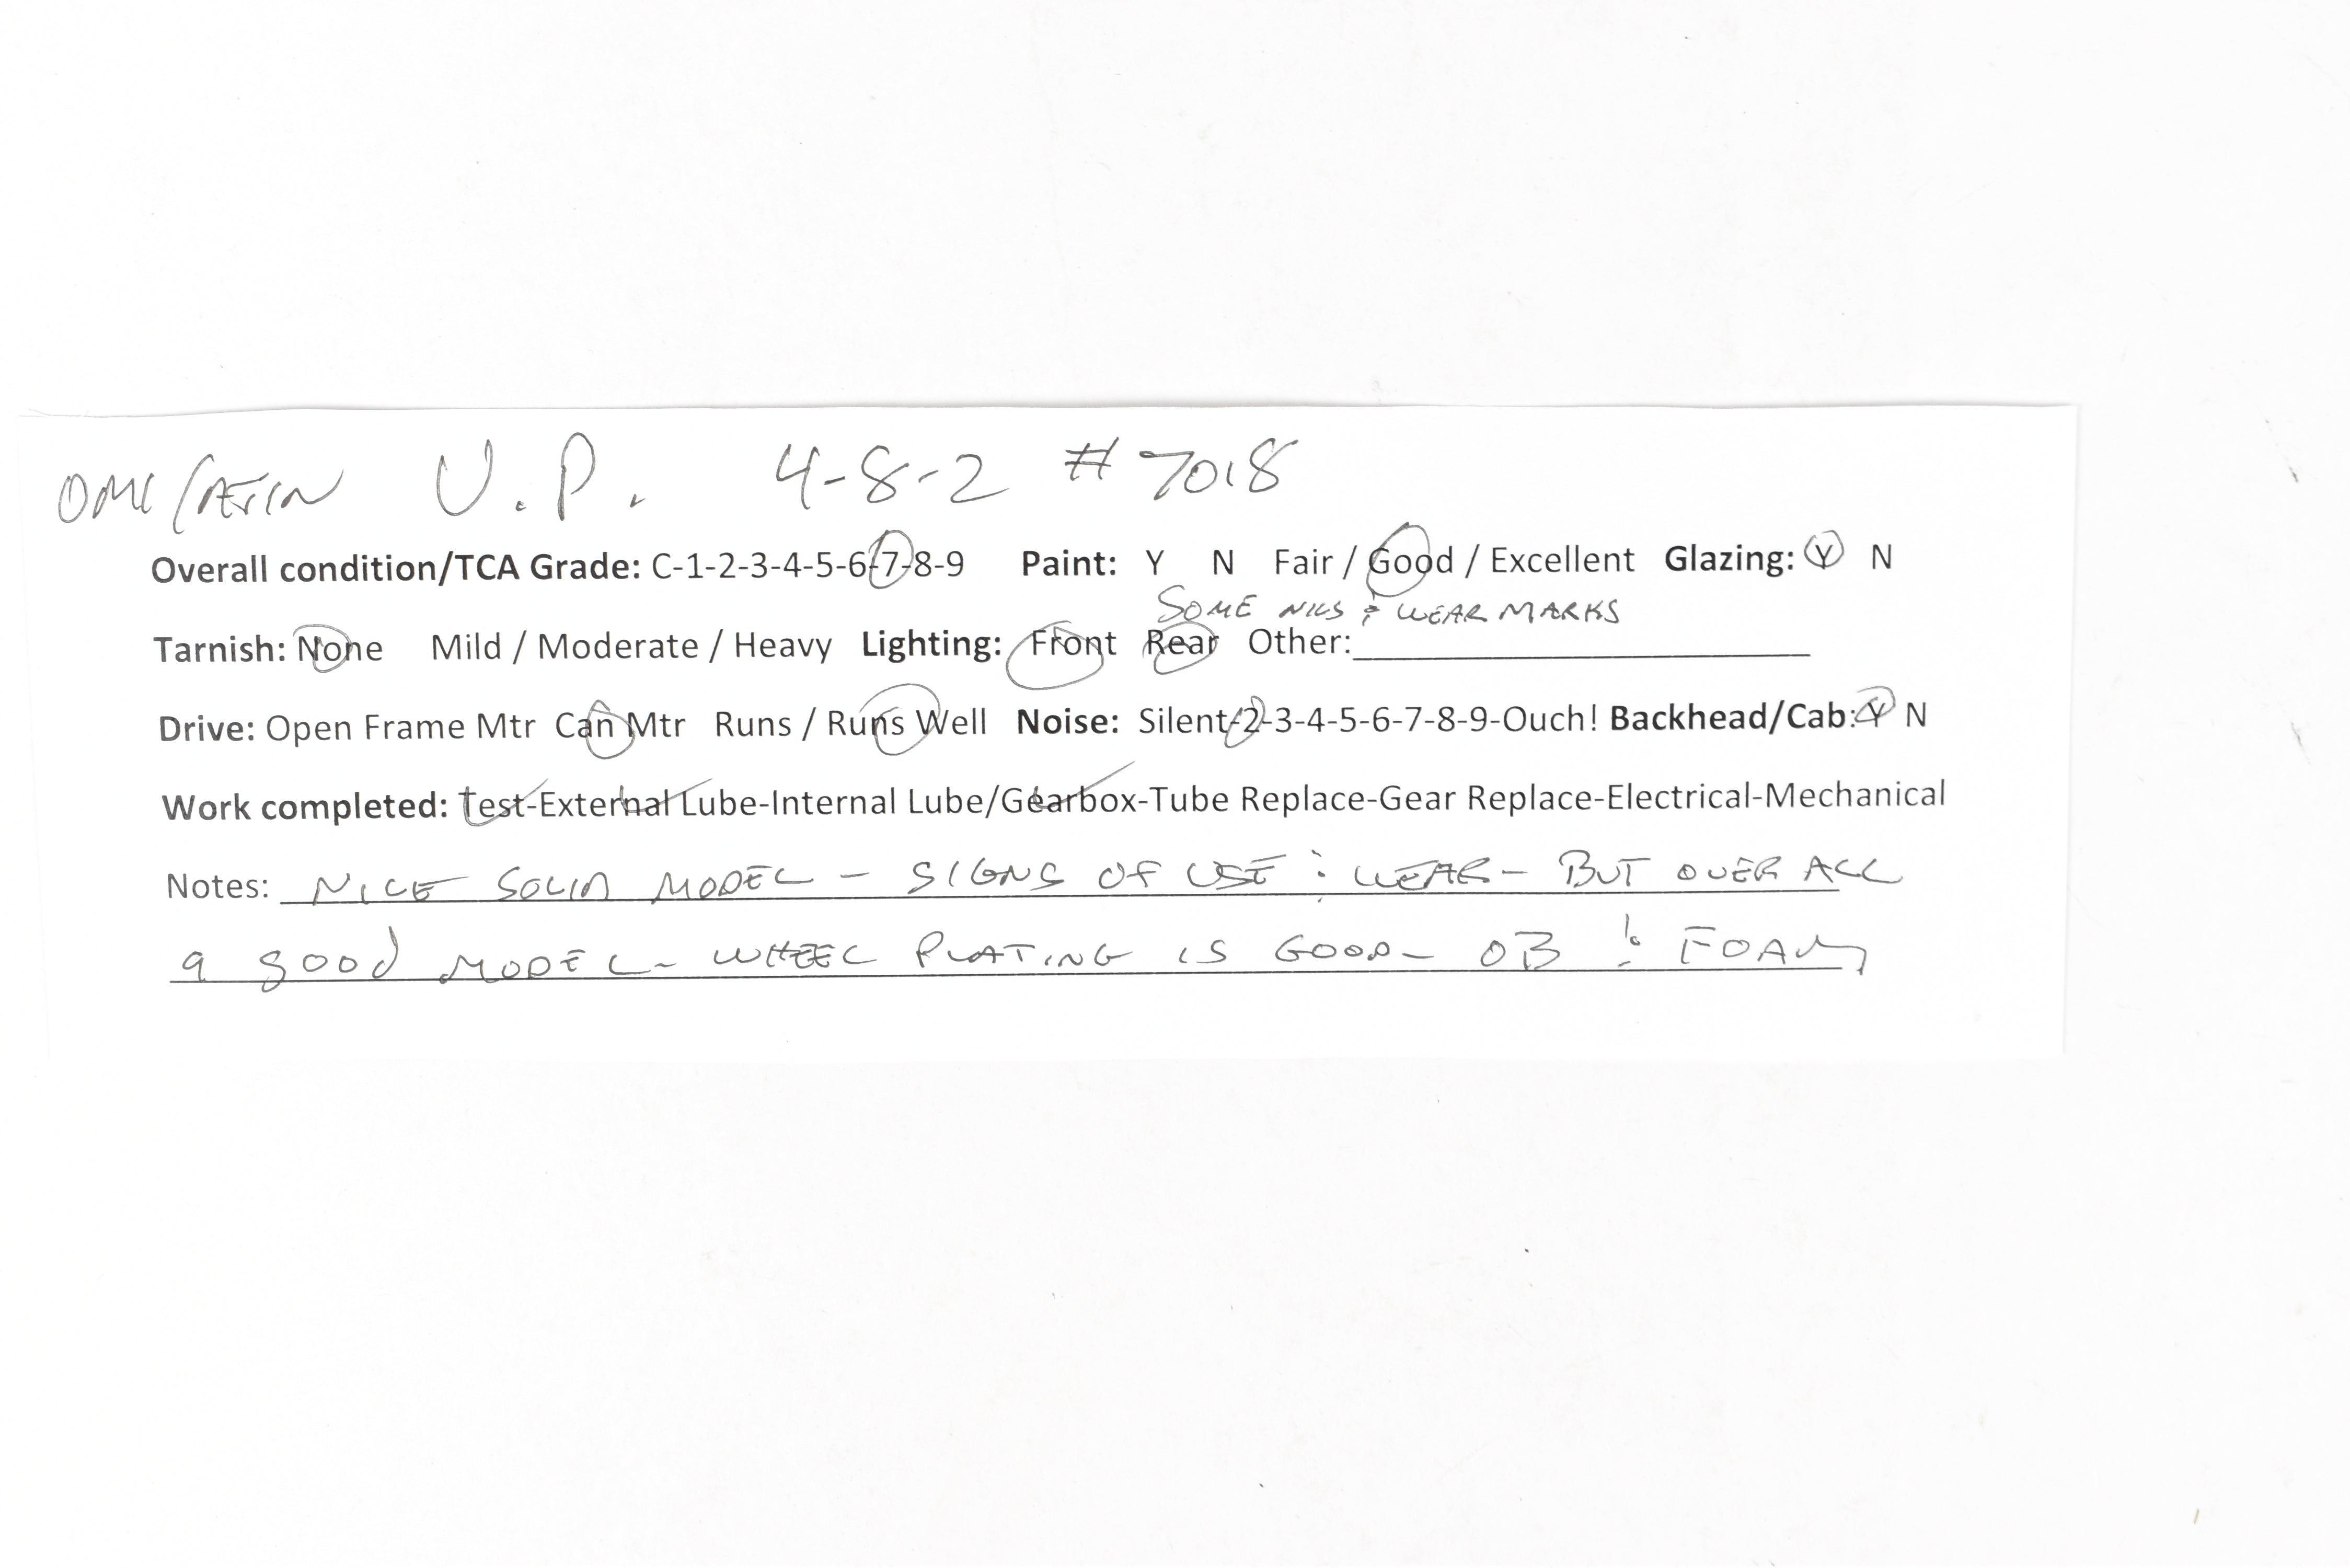 OMI/AJIN U.P. 4-8-2 #7018
Overall condition/TCA Grade: C-1-2-3-4-5-6-7-8-9 Paint: Y N Fair / Good / Excellent Glazing: Y N
SOME NICS & WEAR MARKS
Tarnish: None Mild / Moderate / Heavy Lighting: Front Rear Other:
Drive: Open Frame Mtr Can Mtr Runs / Runs Well Noise: Silent-2-3-4-5-6-7-8-9-Ouch! Backhead/Cab: Y N
Work completed: Test-External Lube-Internal Lube/Gearbox-Tube Replace-Gear Replace-Electrical-Mechanical
Notes: NICE SOLID MODEL - SIGNS OF USE & WEAR - BUT OVER ALL
a good MODEL - WHEEL PLATING IS GOOD - OB & FOAM